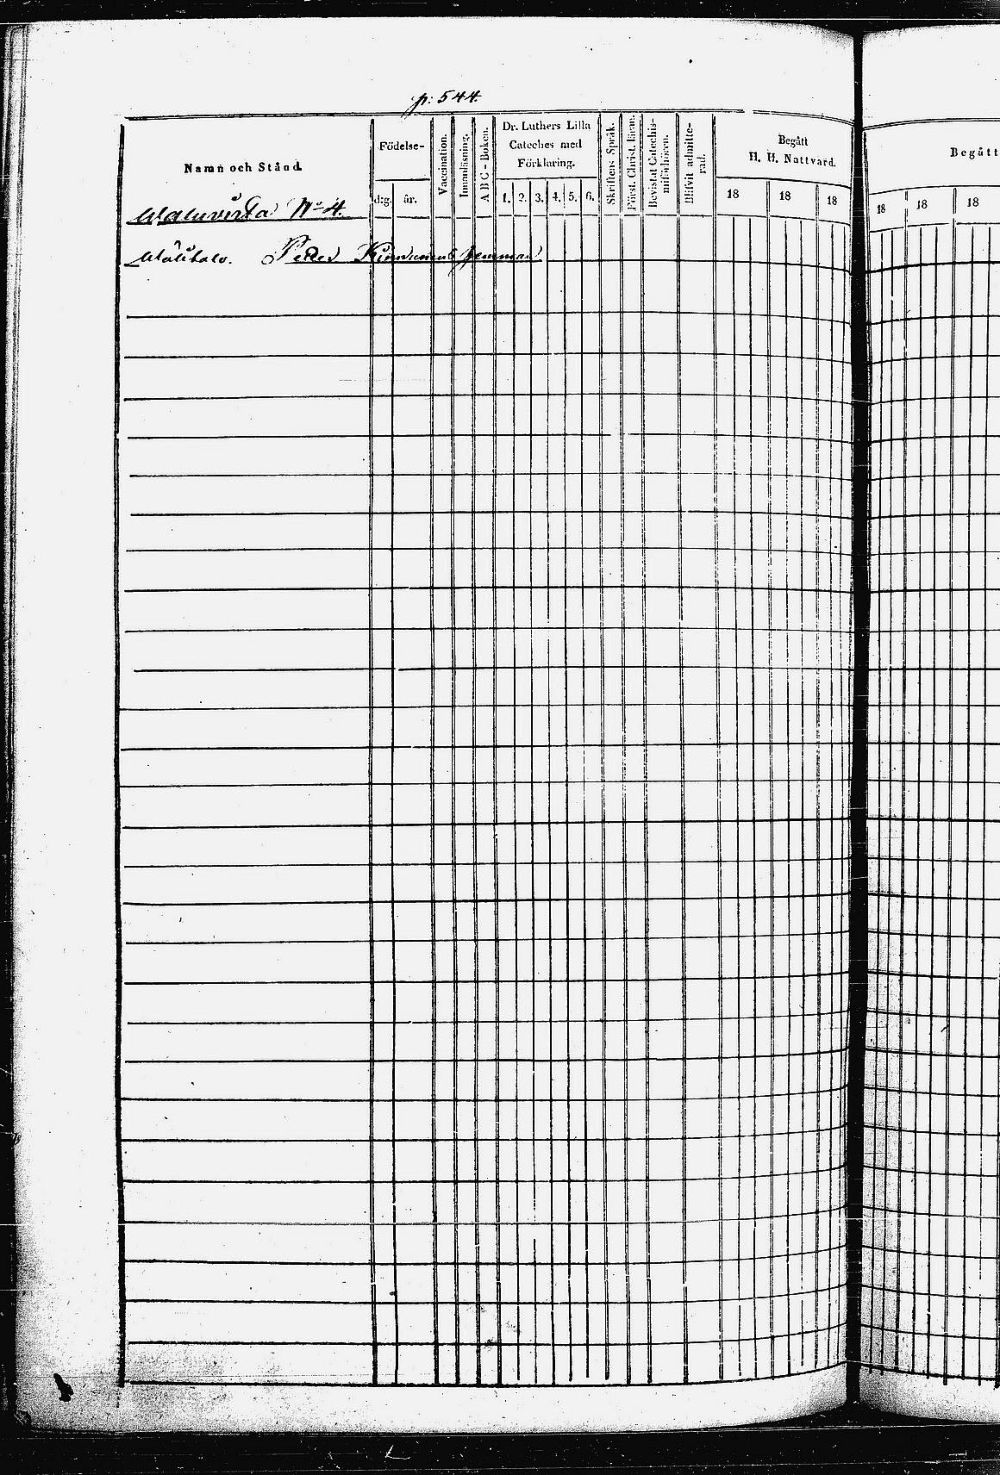 p. 544.
Namn och Stånd.
Födelse-
dag. år.
Vaccination.
Innanläsning.
A B C - Boken.
Dr. Luthers Lilla
Cateches med
Förklaring.
1. 2. 3. 4. 5. 6.
Skriftens Språk.
Först. Christ. Lären.
Bevistat Catechis-
miförhören.
Blifvit admitte-
rad.
Begått
H. H. Nattvard.
18 18 18
Begått
18 18 18
No 4.
Peder